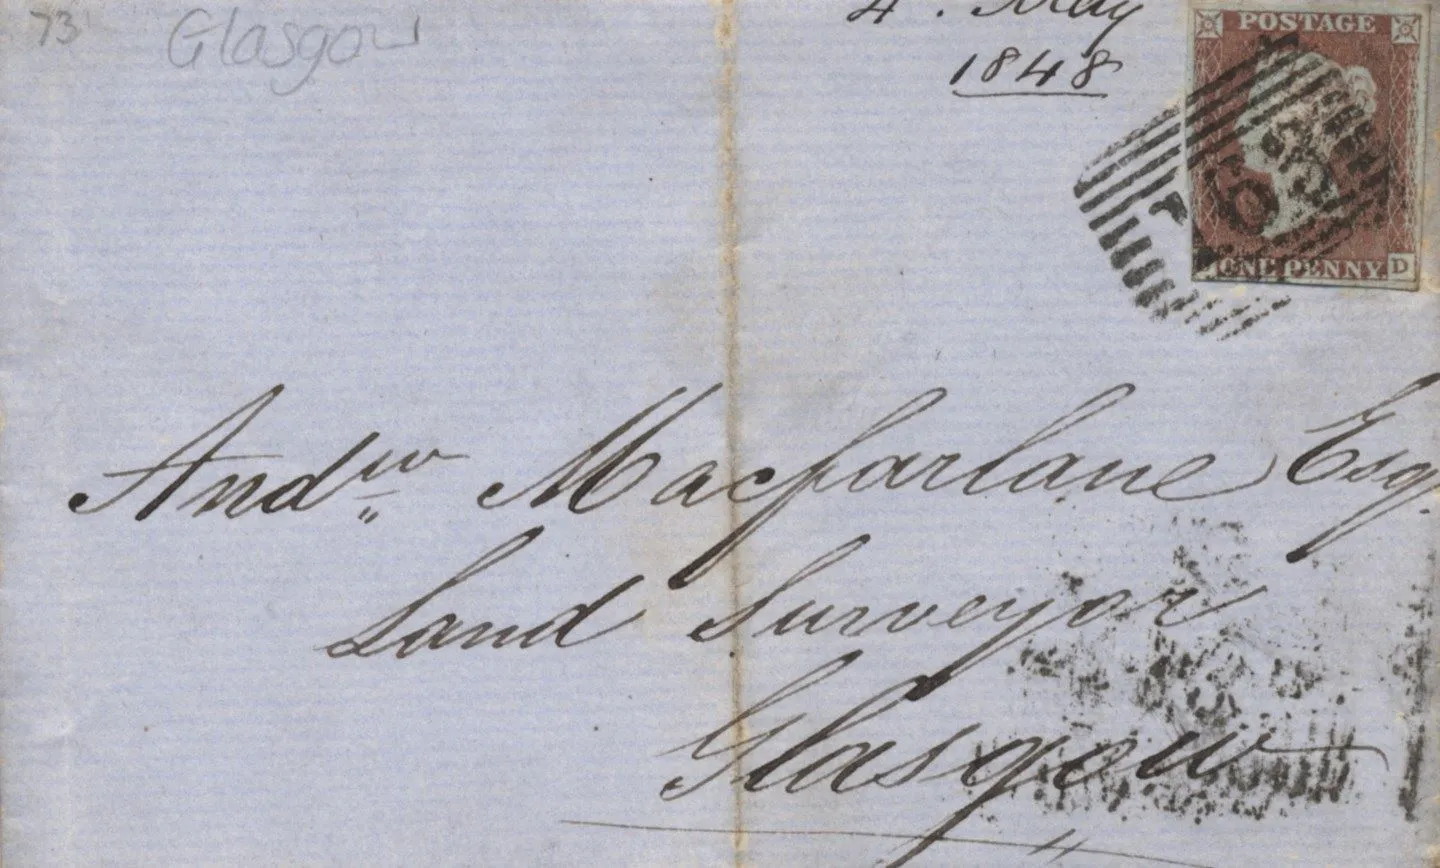 73 Glasgow
4. May
1848
POSTAGE
ONE PENNY D
Andw Macfarlane Esq.
Land Surveyor
Glasgow